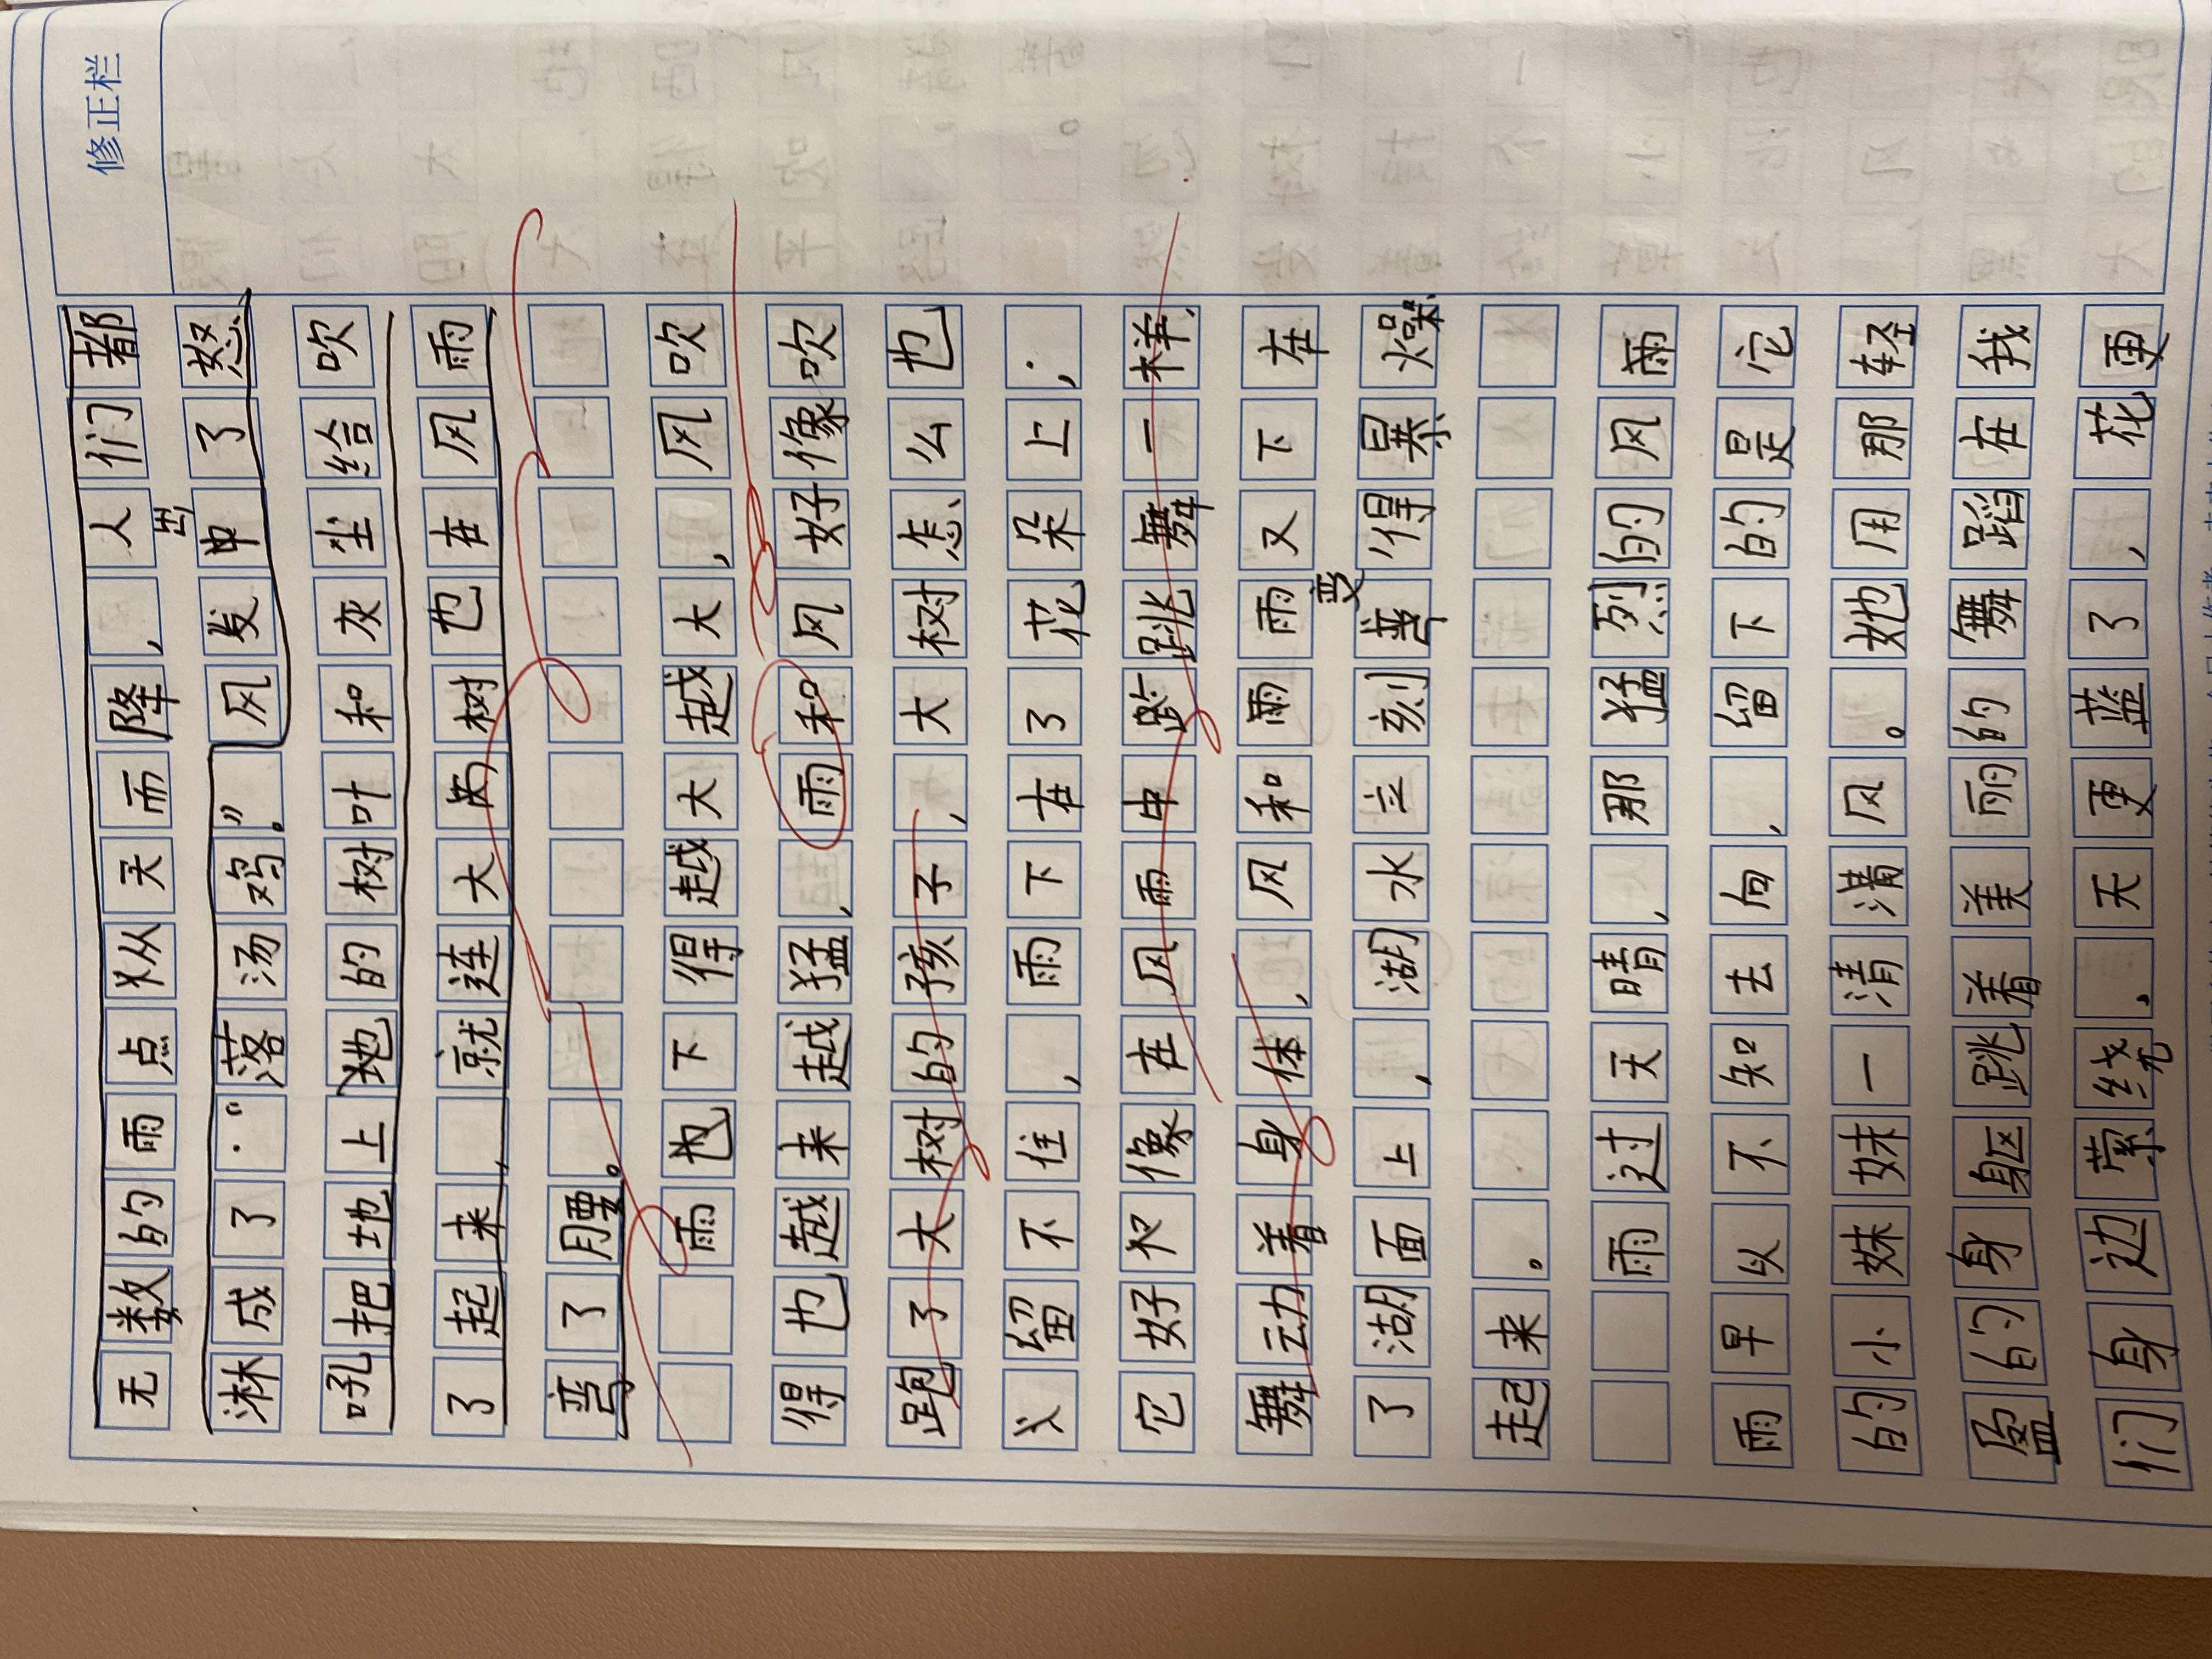 无数的雨点从天而降，人们都
淋成了“落汤鸡”。风发出了怒
吼把地上的树叶和灰尘给吹
了起来，就连大树也在风雨
弯了腰。
雨也下得越大越大，风吹
得也越来越猛，雨和风好像吹
跑了大树的孩子，大树怎么也
留不住，雨下在了花朵上；
它好像在风雨中跳舞一样，
舞动着身体，风和雨雨又下在
了湖面上，湖水立刻变得暴燥
起来。
雨过天晴，那猛烈的风雨
雨早以不知去向，留下的是它
的小妹妹一清风。她用那轻
盈的身躯跳着美丽的舞蹈在我
们身边萦绕。天更蓝了，花更
修正栏